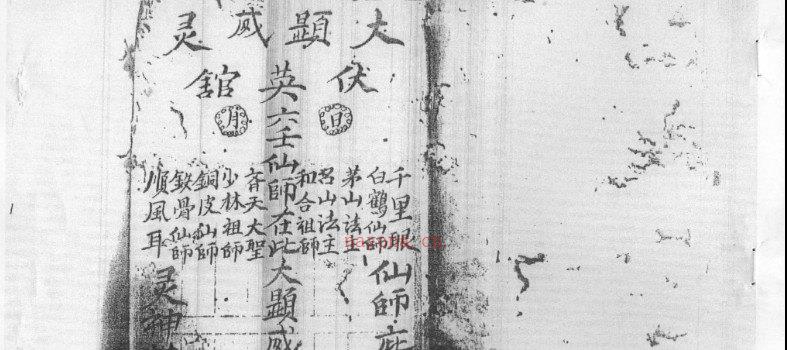 大顯威灵
伏英館
日
月
千里眼
白鶴仙師
茅山法主
呂山法主
和合祖師
六壬仙師在此大顯威
齊天大聖
少林祖師
銅皮仙師
鉄骨仙師
順風耳
仙師
灵神